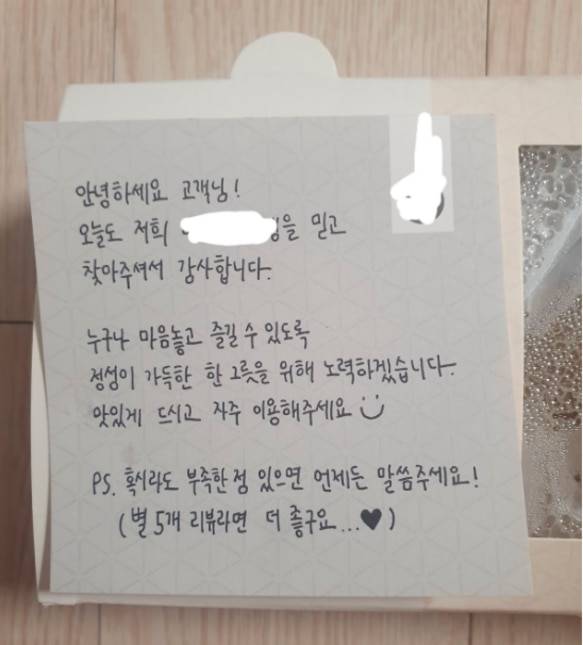 안녕하세요 고객님!
오늘도 저희 을 믿고
찾아주셔서 감사합니다.
누구나 마음놓고 즐길 수 있도록
정성이 가득한 한 그릇을 위해 노력하겠습니다.
맛있게 드시고 자주 이용해주세요
PS. 혹시라도 부족한 점 있으면 언제든 말씀주세요!
(별 5개 리뷰라면 더 좋구요...♥)